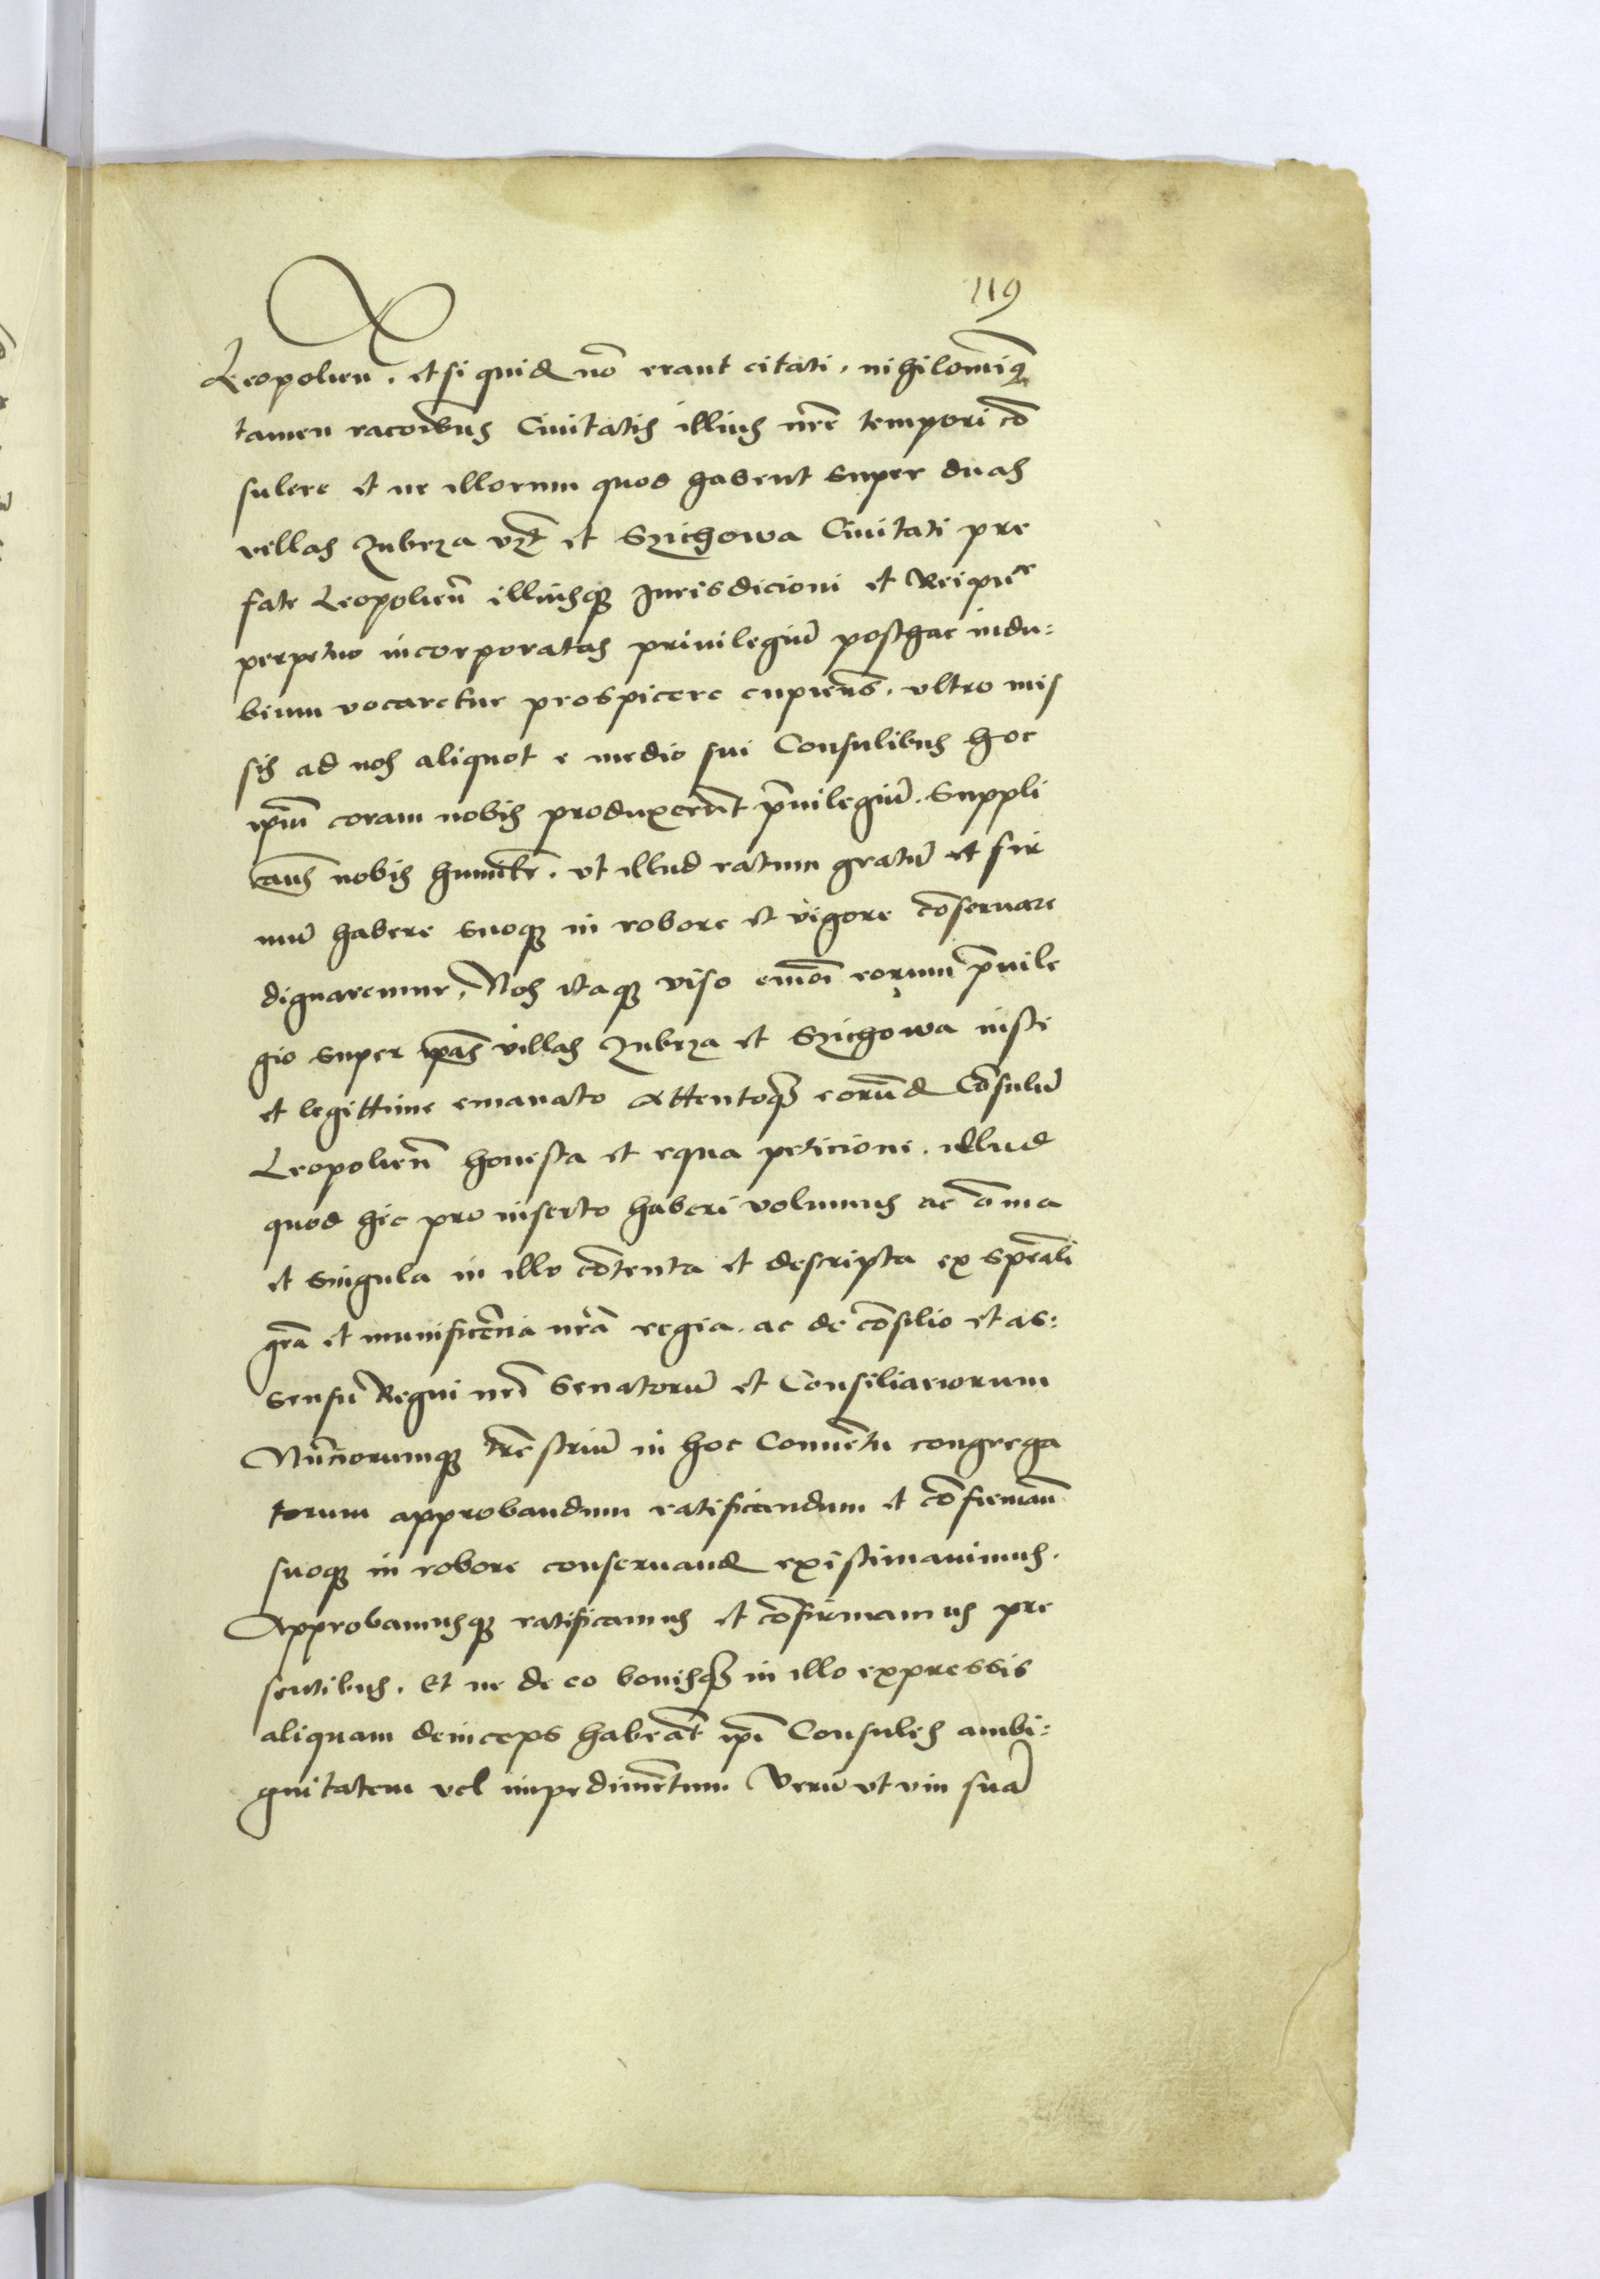 119
Leopolien̄. etsi quid nō erant citati. nihilomiq
tamen racōibus Ciuitatis illius nr̄e tempori cō
sulere et ne illorum quod habent super duas
villas Zubrza vz̄t et Szichowa Ciuitati pre
fate Leopolien̄ illiusq; Jurisdicioni et Reipu^ce
perpetuo incorporatas priuilegiū posthac indu:
bium vocaretur prospicere cupiens. vltro mis
sis ad nos aliquot e medio sui Consulibus hoc
ip̄m coram nobis produxerūt p̄uilegiū. Suppli
cān̄s nobis humilr̄. vt illud ratum gratū et fir
mū habere suoq; in robore et vigore cōseruare
dignaremur. Nos itaq; viso em̄oī eorum p̄uile
gio super ip̄as villas Zubrza et Szichowa iuste
et legittime emanato Attentoq; eorūd Cōsulū
Leopolien̄ honesta et equa peticione. illud
quod hic pro inserto haberi volumus ac ōnia
et singula in illo cōtenta et descripta ex sp̄eali
gr̄a et munificēcia nr̄a regia. ac de cōsilio et as:
sensu Regni nr̄i Senatorū et Consiliariorum
Nūciorumq; tr̄estriū in hoc Conuētu congrega
torum approbandum ratificandum et cōfirmān
suoq; in robore conseruand existimauimus.
Approbamusq; ratificamus et cōfirmamus pre
sentibus. Et ne de eo bonisq; in illo expressis
aliquam deinceps habeāt ip̄i Consules ambi:
guitatem vel impedimētum Verū vt vim suā